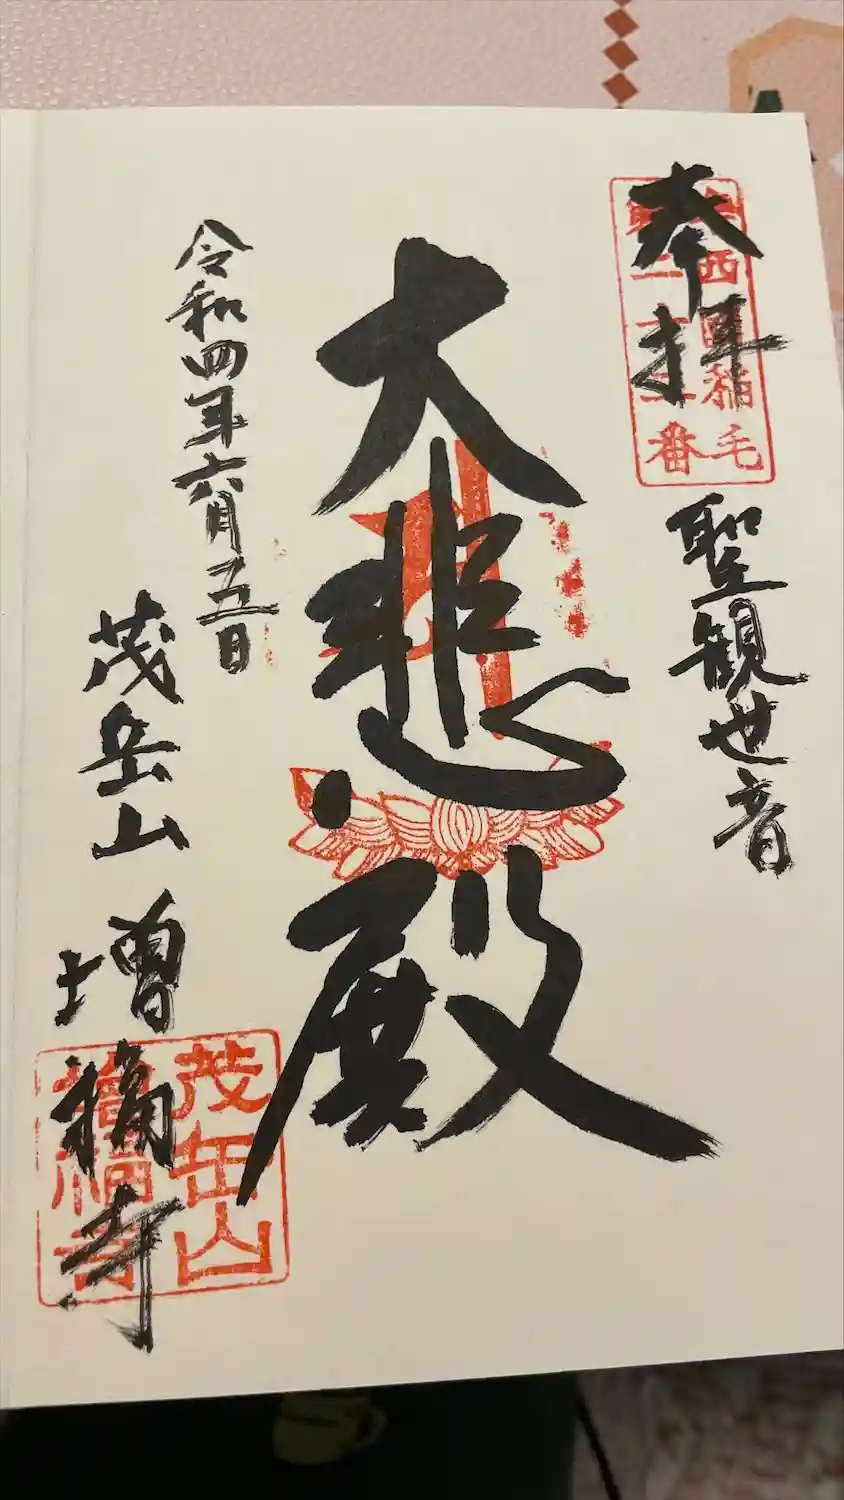 奉拝
聖観世音
大悲殿
令和四年六月五日
茂岳山
増福寺
西國稲毛
番
茂岳山
増福寺